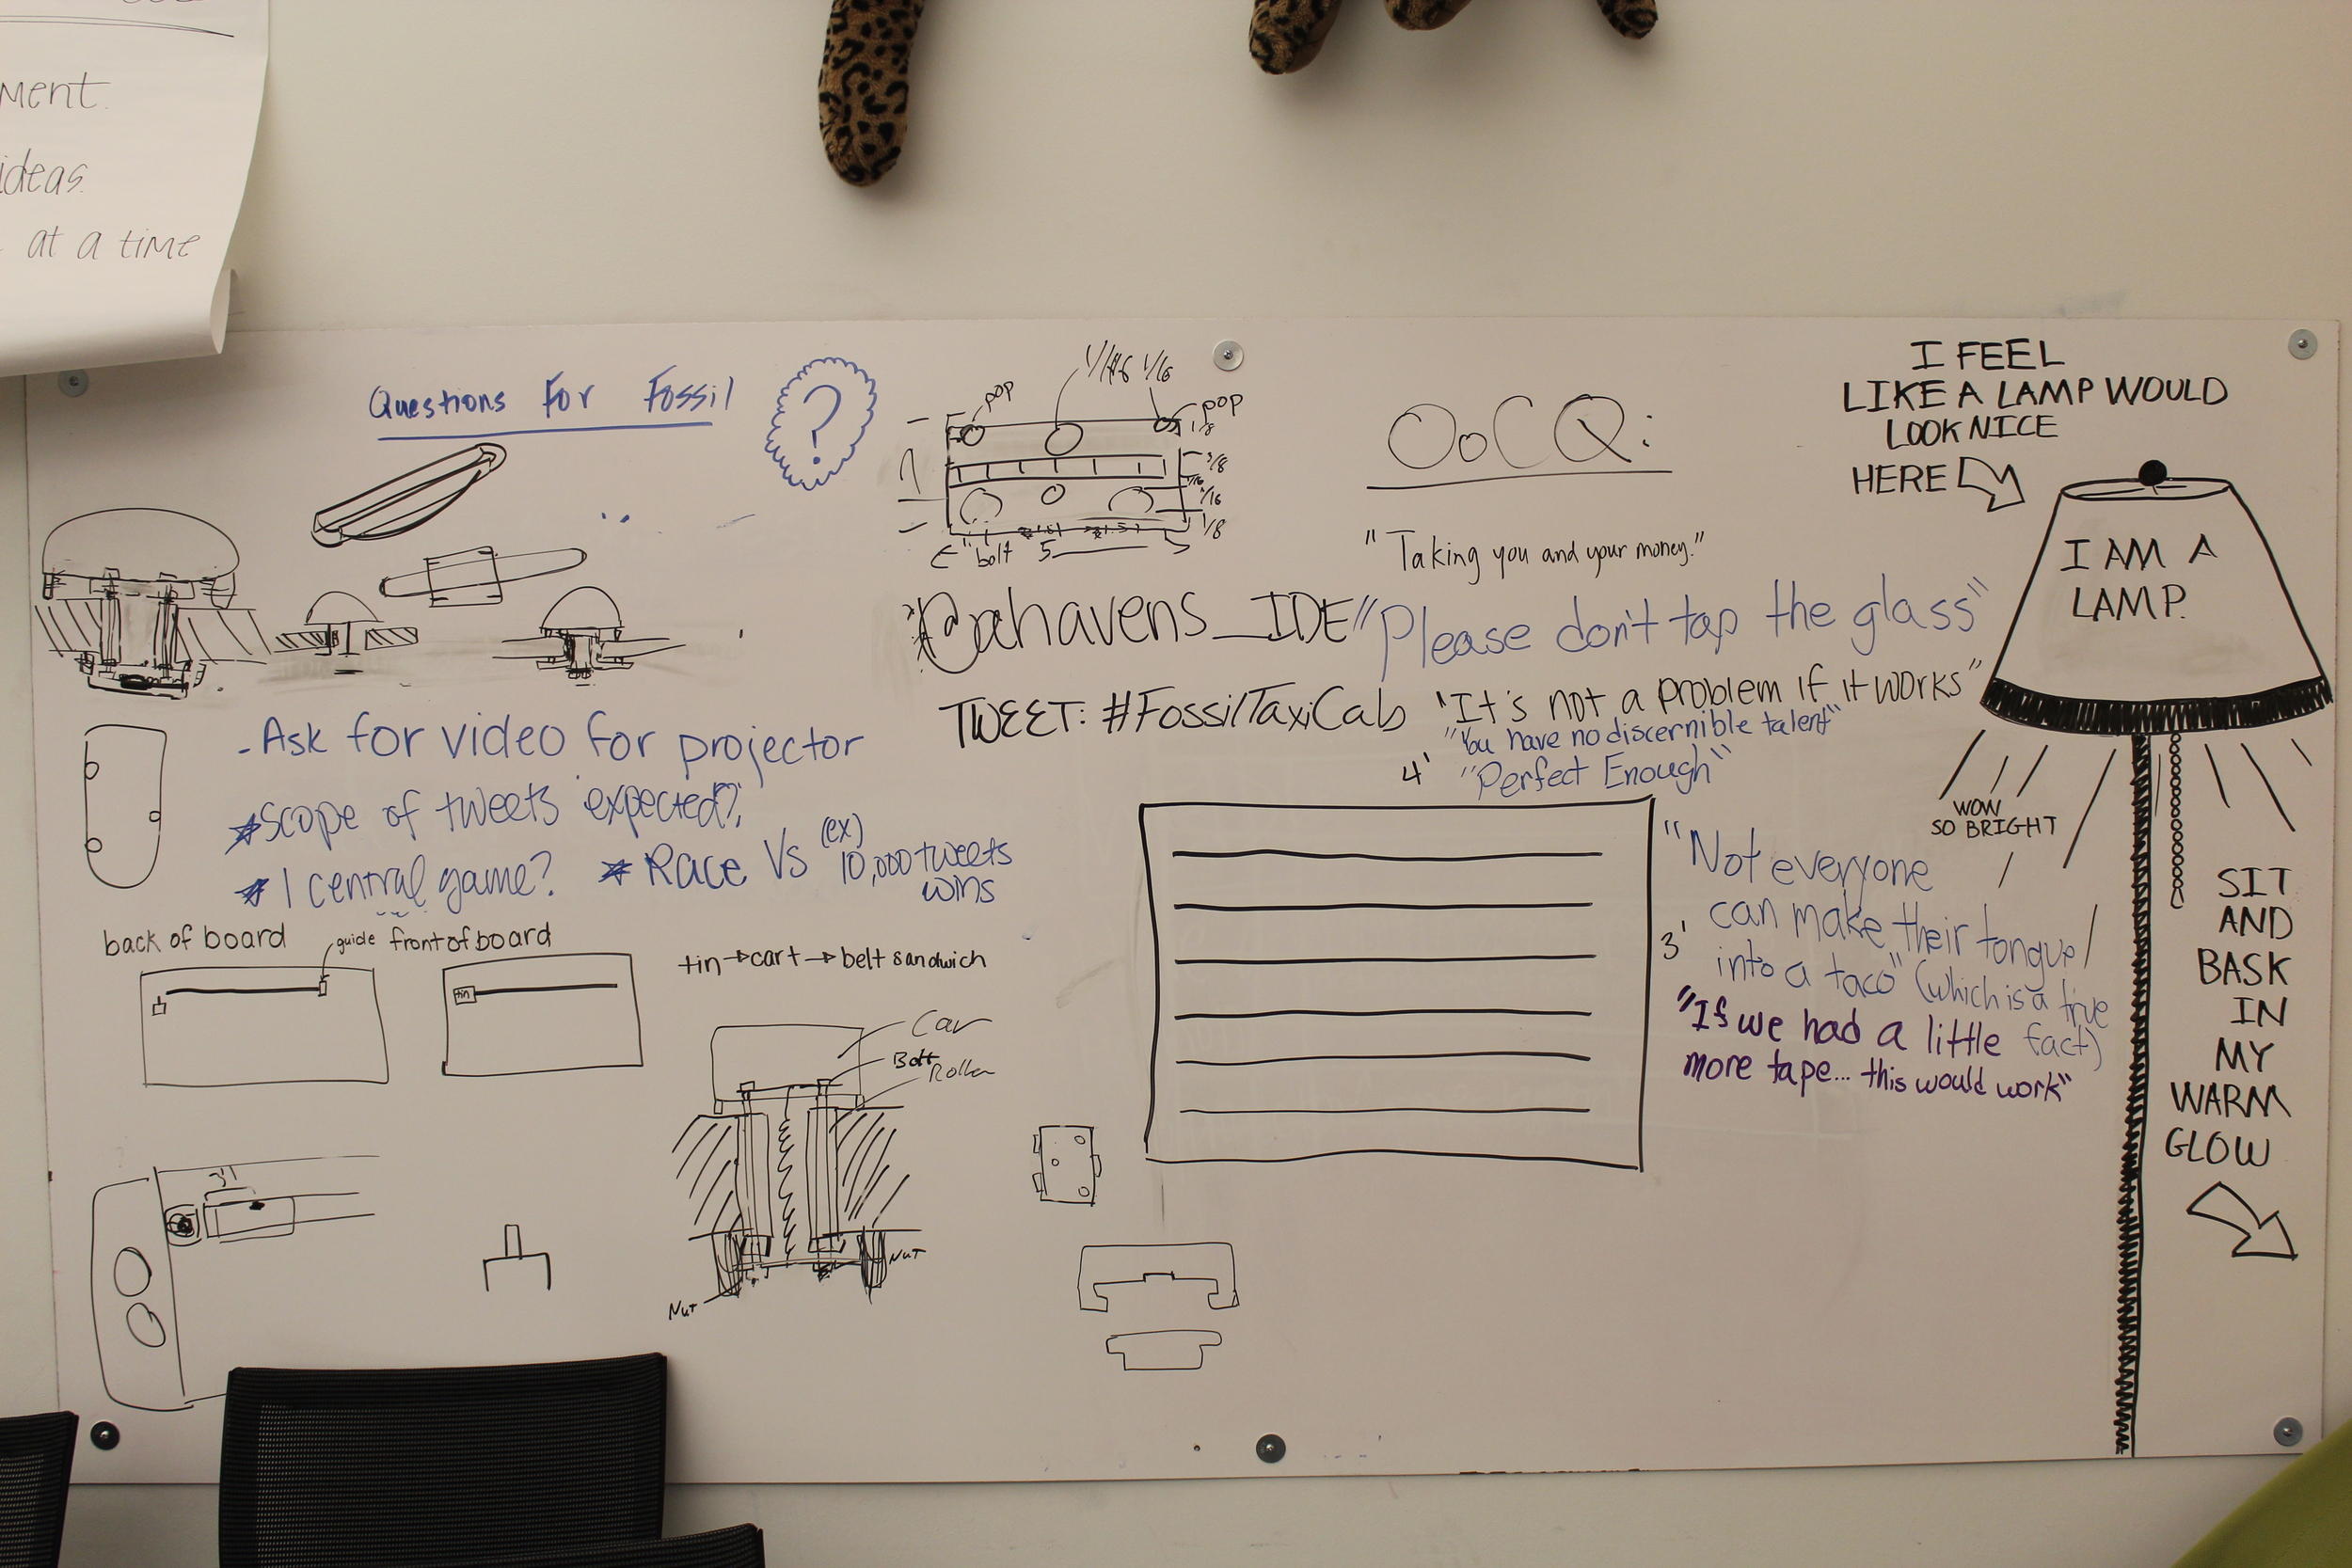 ment.
ideas.
at a time
Questions For Fossil
?
- Ask for video for projector
*Scope of tweets expected?
* 1 central game? * Race Vs (ex) 10,000 tweets
wins
back of board
guide
front of board
tin
tin → cart → belt sandwich
Car
Bolt
Roller
Nut
Nut
3"
pop
1/16
pop
1/8
3/8
1/8
bolt
5
@ahavens_IDE
TWEET: #FossilTaxiCab
OoCQ:
"Taking you and your money."
"Please don't tap the glass"
"It's not a problem if it works"
"You have no discernible talent"
"Perfect Enough"
4'
3'
"Not everyone
can make their tongue
into a taco" (which is a true
fact)
"If we had a little
more tape... this would work"
I FEEL
LIKE A LAMP WOULD
LOOK NICE
HERE
I AM A
LAMP.
WOW
SO BRIGHT
SIT
AND
BASK
IN
MY
WARM
GLOW